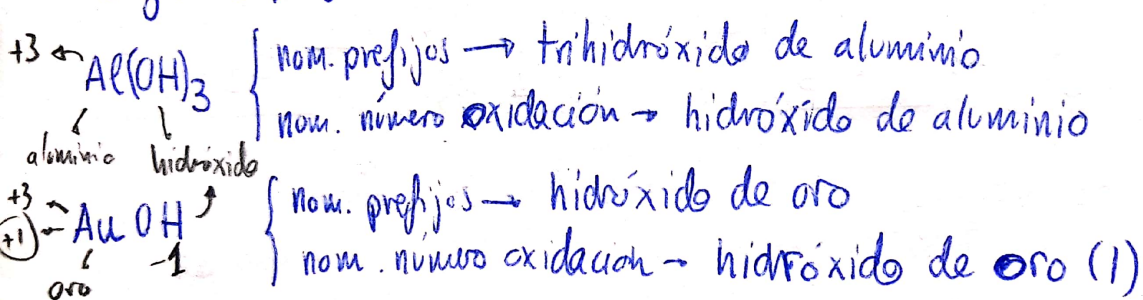 +3 Al(OH)3 nom. prefijos → trihidróxido de aluminio
nom. número oxidación → hidróxido de aluminio
aluminio hidróxido
+3 nom. prefijos → hidróxido de oro
+1 Au OH
-1 nom. número oxidación → hidróxido de oro (I)
oro